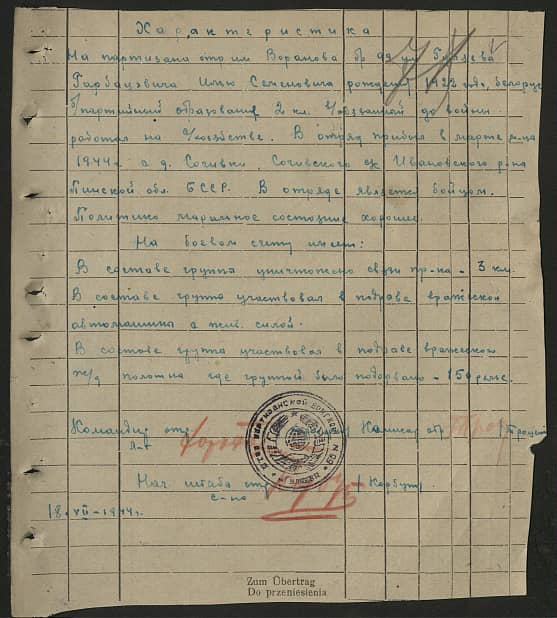 Характеристика
На партизана отр им Воранова бр 99 им Гуляева
Гарбацевича Илью Семеновича рожден 1922 года, белорус
б/партийный образование 2 кл. до войны
работал на с/хозяйстве. В отряд прибыл в марте м-це
1944 г. а д. Сочивки, Сочивского с/с Ивановского р-на
Пинской обл. БССР. В отряде является бойцом.
Политико маральное состояние хорошее.
На боевом счету имеет:
В составе группы уничтожено связи пр-ка - 3 км.
В составе группы участвовал в подрыве вражеской
автомашины с жив. силой.
В составе группы участвовал в подрыве вражеского
ж/д полотна где группой было подорвано - 150 рельс.
Командир отр Комисар отр
Л-т
Нач штаба отр / Корбут /
с-на
18. VII - 1944 г.
Zum Übertrag
Do przeniesienia